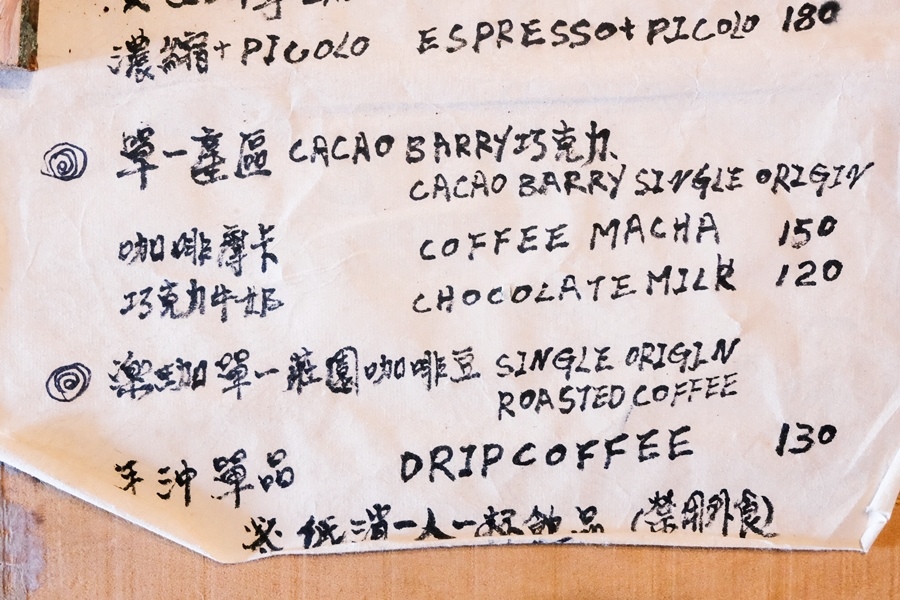 濃縮+PICOLO ESPRESSO+PICOLO 180
單一產區 CACAO BARRY巧克力
CACAO BARRY SINGLE ORIGIN
咖啡摩卡 COFFEE MACHA 150
巧克力牛奶 CHOCOLATE MILK 120
單一莊園咖啡豆 SINGLE ORIGIN
ROASTED COFFEE
手沖單品 DRIP COFFEE 130
低消一人一杯飲品 (禁用外食)